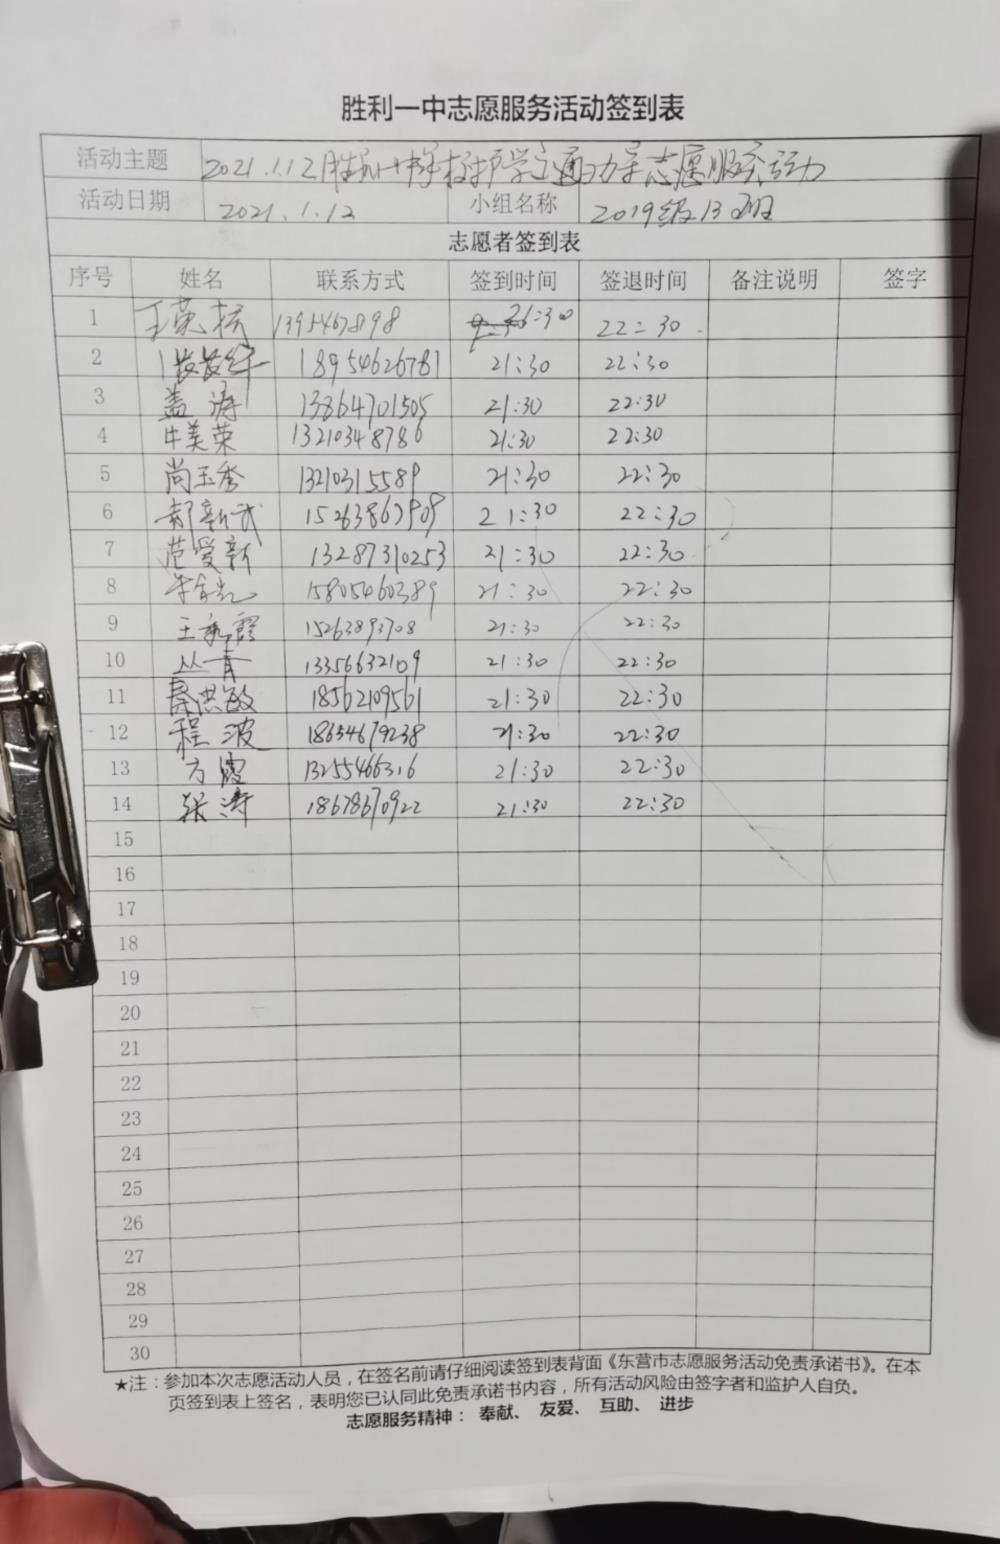 胜利一中志愿服务活动签到表
活动主题 2021.1.12胜利一中学校护学交通疏导志愿服务活动
活动日期 2021.1.12 小组名称 2019级13班
志愿者签到表
序号 姓名 联系方式 签到时间 签退时间 备注说明 签字
1 21:30 22:30
2 18954626781 21:30 22:30
3 盖涛 13864701505 21:30 22:30
4 牛美荣 13210348786 21:30 22:30
5 尚玉秀 13210315589 21:30 22:30
6 郝新武 21:30 22:30
7 范爱新 13287310253 21:30 22:30
8 15805460389 21:30 22:30
9 15263893708 21:30 22:30
10 丛青 13356632109 21:30 22:30
11 秦洪敏 18562109561 21:30 22:30
12 程波 18654679238 21:30 22:30
13 方霞 13255466316 21:30 22:30
14 张涛 18678670922 21:30 22:30
15
16
17
18
19
20
21
22
23
24
25
26
27
28
29
30
★注：参加本次志愿活动人员，在签名前请仔细阅读签到表背面《东营市志愿服务活动免责承诺书》。在本
页签到表上签名，表明您已认同此免责承诺书内容，所有活动风险由签字者和监护人自负。
志愿服务精神： 奉献、 友爱、 互助、 进步